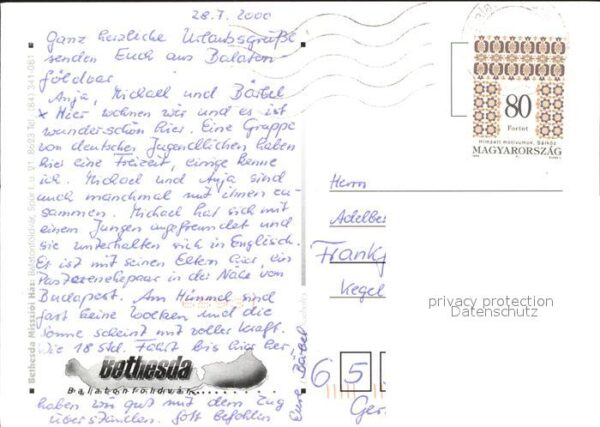 28.7. 2000
Ganz herzliche Urlaubsgrüße
senden Euch aus Balaton-
földvar
Anja, Michael und Bärbel
x Hier wohnen wir und es ist
wunderschön hier. Eine Gruppe
von deutschen Jugendlichen haben
hier eine Freizeit, einige kenne
ich. Michael und Anja sind
auch manchmal mit ihnen zu-
sammen. Michael hat sich mit
einem Jungen angefreundet und
sie unterhalten sich in Englisch.
Er ist mit seinen Eltern hier, ein
Pastorenehepaar in der Nähe von
Budapest. Am Himmel sind
fast keine Wolken und die
Sonne scheint mit voller Kraft.
Die 18 Std. Fahrt bis hier her,
haben wir gut mit dem Zug
überstanden. Gott befohlen
Eure Bärbel
bethesda
Balatonföldvár
Bethesda Missziói Ház: Balatonföldvár
80
Forint
MAGYARORSZÁG
Herrn
Adelber
Frankf
Kegel
privacy protection
Datenschutz
6 5
Ger